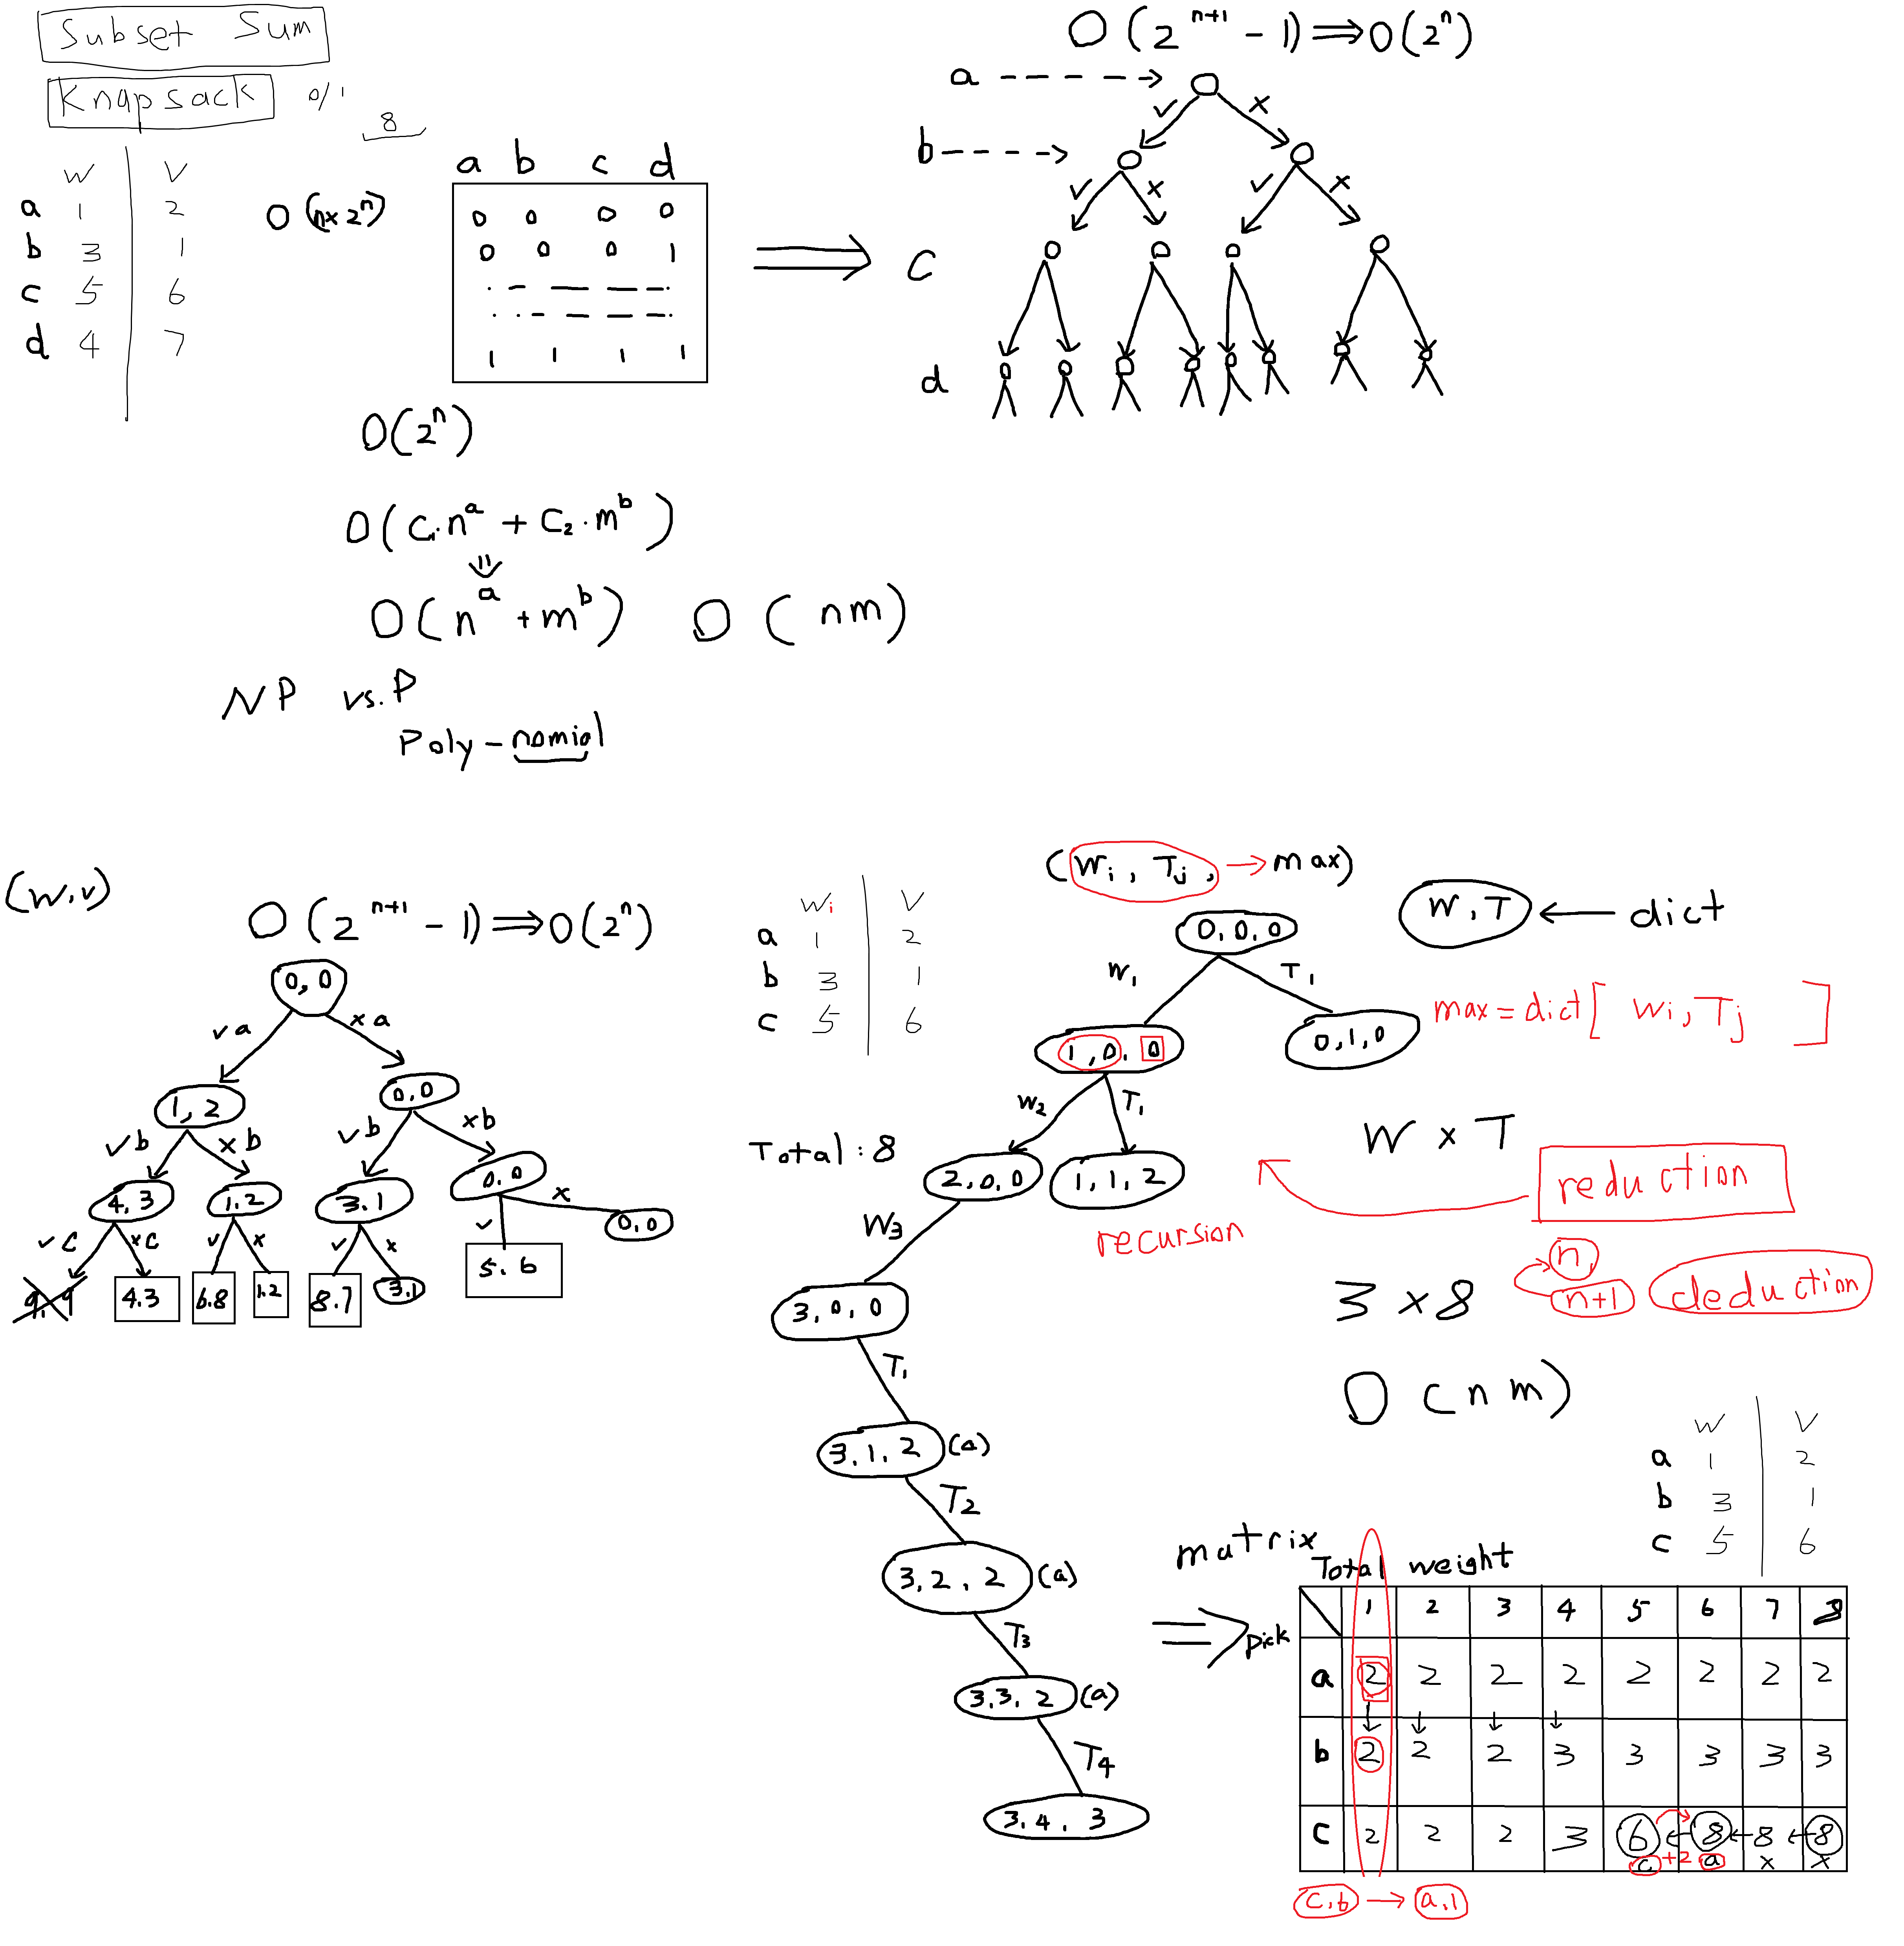 Subset Sum
Knapsack 0/1
8
W V
a 1 2
b 3 1
c 5 6
d 4 7
O(n×2ⁿ)
a b c d
0 0 0 0
0 0 0 1
1 1 1 1
O(2ⁿ)
O(2ⁿ⁺¹ - 1) ⇒ O(2ⁿ)
a
✓ ×
b
✓ × ✓ ×
c
d
O(C₁·nᵃ + C₂·mᵇ)
O(nᵃ + mᵇ) O(nm)
NP vs. P
Poly-nomial
(W,v)
O(2ⁿ⁺¹ - 1) ⇒ O(2ⁿ)
0,0
✓a ×a
1,2 0,0
✓b ×b ✓b ×b
4,3 1,2 3,1 0,0
✓c ×c ✓ × ✓ × ✓ ×
9,9 4.3 6.8 1.2 8.7 3.1 5.6 0,0
Wi V
a 1 2
b 3 1
c 5 6
Total: 8
(Wi, Tj, → max)
W,T ← dict
max = dict[ Wi, Tj ]
0,0,0
W₁ T₁
1,0,0 0,1,0
W₂ T₁
2,0,0 1,1,2
W₃
recursion
3,0,0
T₁
3,1,2 (a)
T₂
3,2,2 (a)
T₃
3,3,2 (a)
T₄
3,4,3
W × T
reduction
3 × 8
n
n+1
deduction
O(nm)
W V
a 1 2
b 3 1
c 5 6
matrix
Total weight
Pick
1 2 3 4 5 6 7 8
a 2 2 2 2 2 2 2 2
b 2 2 2 3 3 3 3 3
c 2 2 2 3 6 ← 8 ← 8 ← 8
c +2 a × ×
c,6 → a,1